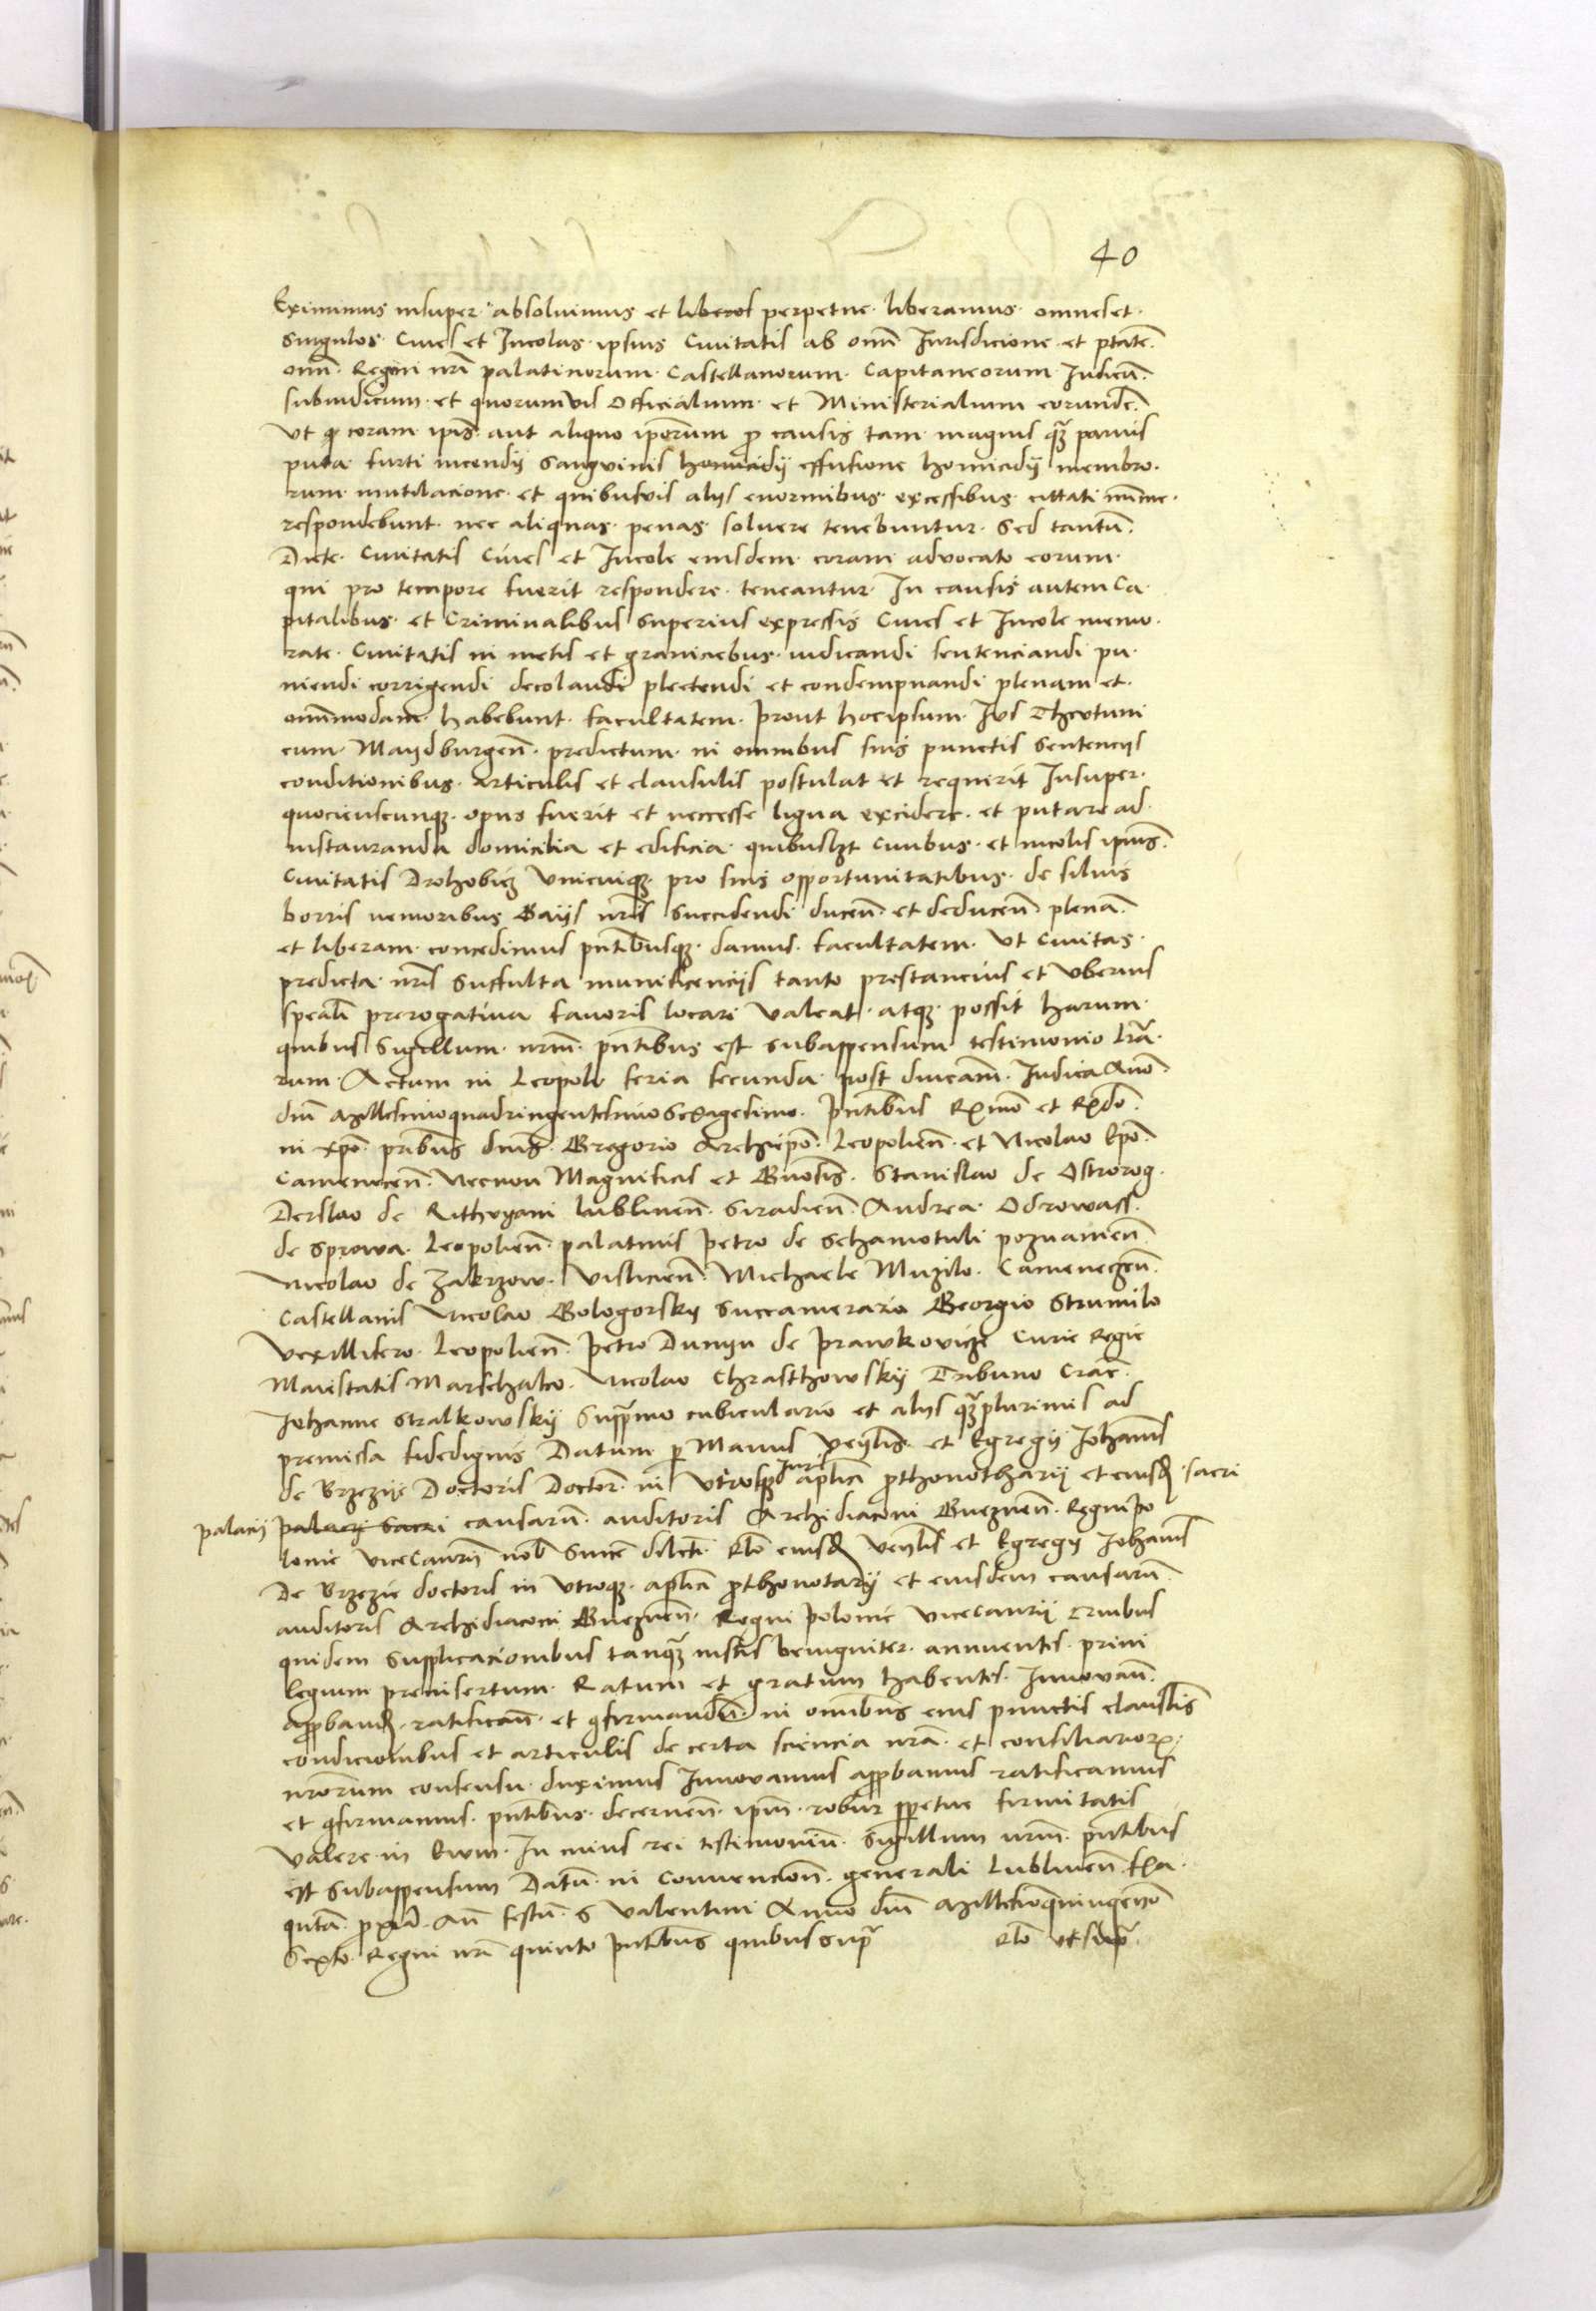 40
Eximimus insuper absolvimus et liberos perpetue liberamus omnes et
singulos Cives et Incolas ipsius Civitatis ab omni Iurisdicione et ptate
omn Regni nri palatinorum Castellanorum Capitaneorum Iudicu
subiudicum et quorumvis Officialium et Ministerialium eorunde
Ut q coram ipis aut aliquo iporum p causis tam magnis q parvis
puta furti incendij Sangvinis homicidij effusione homicidij membro
rum mutilacione et quibusvis alijs enormibus excessibus cittati minime
respondebunt nec aliquas penas solvere tenebuntur Sed tantu
Dicte Civitatis Cives et Incole eiusdem coram advocato eorum
qui pro tempore fuerit respondere teneantur In causis autem Ca
pitalibus et Criminalibus superius expressis Cives et Incole memo
rate Civitatis in metis et graniciebus iudicandi sentenciandi pu
niendi corrigendi decolandi plectendi et condempnandi plenam et
omnimodam habebunt facultatem prout hoc ipsum Ius Theutuni
cum Maydburgen predictum in omnibus suis punctis Sentencijs
conditionibus articulis et clausulis postulat et requirit Insuper
quociescunq opus fuerit et neccesse ligna excidere et putare ad
instauranda domicilia et edificia quibuslzt Civibus et incolis ipius
Civitatis Drohobicz Unicuiq pro suis opportunitatibus de silvis
borris nemoribus Gaijs nris Succidendi ducen et deducen plena
et liberam concedimus pntibusq damus facultatem Ut Civitas
predicta nris Suffulta munificencijs tanto prestancius et Uberius
speali prerogativa favoris locari Valeat atq possit harum
quibus Sigillum nrm pntibus est Subappensum testimonio lra
rum Actum in Leopoli feria secunda post dnicam Iudica Ano
dni Millesimoquadringentesimosexagesimo pntibus Rxmo et Rxdo
in xpo pribus dnis Gregorio Archiepo Leopolien et Nicolao Epo
Camenecen Necnon Magnificis et Gnosis Stanislao de Ostrorog
Derslao de Rithwyani lublinen Siradien Andrea Odrowass
de Sprowa Leopolien palatinis petro de Schamotuli poznanien
Nicolao de Zakrzow Vislicien Michaele Muzilo Camenczen
Castellanis Nicolao Gologorskij Succamerario Georgio Strumilo
Vexillifero Leopolien petro Dunyn de prawkovicze Curie Regie
Maiestatis Marschalco Nicolao Chrasthowskij Tribuno Crac
Iohanne Stralkowskij Supmo cubiculario et alijs qplurimis ad
premissa fidedignis Datum p Manus Venlis et Egregij Iohanis
de Brzezije Doctoris Doctor in Utroq Iure aplici prothonotharij et eiusd sacri
palacij palacij sacri causaru auditoris Archidiaconi Gneznen Regni po
lonie Vicecancrij nob Since dilcti Rlo eiusd Venlis et Egregij Iohanis
De Brzezie doctoris in Utroq aplici prothonotarij et eiusdem causaru
auditoris Archidiaconi Gneznen Regni polonie Vicecancrij
quidem Supplicacionibus tanq iustis benigniter annuentes privi
legium preinsertum Ratum et gratum habentes Innovan
approband ratifican et confirmandu in omibus eius punctis clauslis
condicionibus et articulis de certa sciencia nra et consiliarior
nrorum consensu duximus Innovamus approbamus ratificamus
et confirmamus pntibus decernen ipm robur perpetue firmitatis
Valere in Evum In cuius rei testimoniu Sigillum nrm pntibus
est Subappensum Datu in Convencion generali Lublinen fra
quita proxia an festu S Valentini Anno dni Millesioquingeno
Sexto Regni nri quinto pntibus quibus supra Rlo ut supra